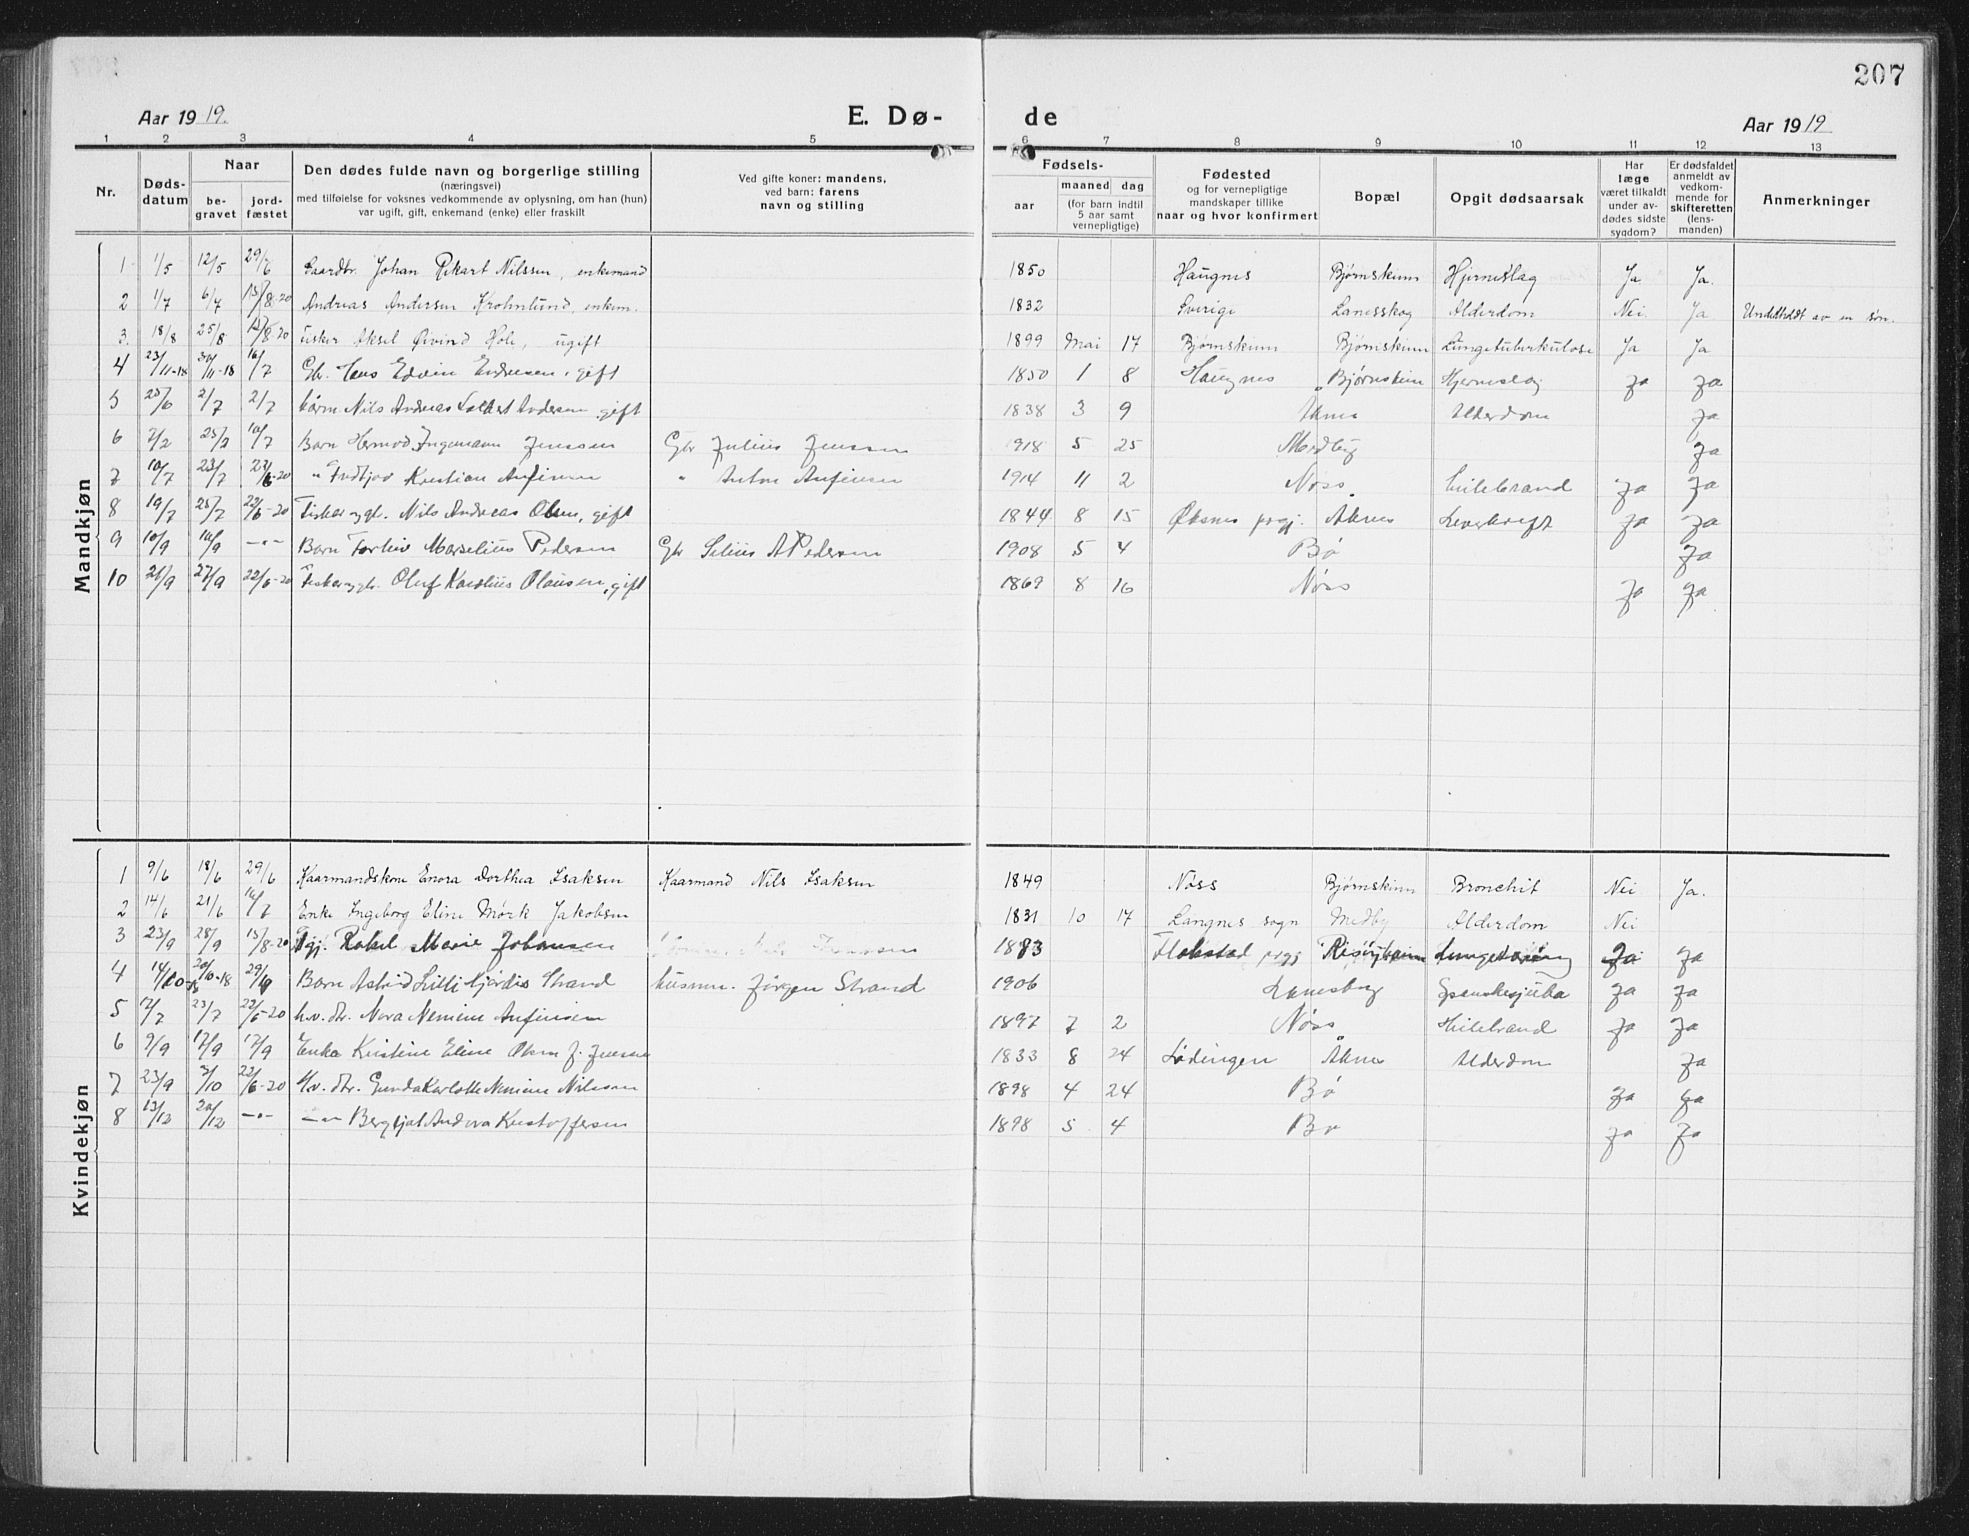 207
Aar 1919.
E. Dø-
de
Aar 1919
1 2 3 4 5 6 7 8 9 10 11 12 13
Nr.
Døds-
datum
Naar
be-
gravet
jord-
fæstet
Den dødes fulde navn og borgerlige stilling
(næringsvei)
med tilføielse for voksnes vedkommende av oplysning, om han (hun)
var ugift, gift, enkemand (enke) eller fraskilt
Ved gifte koner: mandens,
ved barn: farens
navn og stilling
Fødsels-
aar
maaned dag
(for barn indtil
5 aar samt
vernepligtige)
Fødested
og for vernepligtige
mandskaper tillike
naar og hvor konfirmert
Bopæl
Opgit dødsaarsak
Har
læge
været tilkaldt
under av-
dødes sidste
sygdom?
Er dødsfaldet
anmeldt av
vedkom-
mende for
skifteretten
(lens-
manden)
Anmerkninger
Mandkjøn
1 1/5 12/5 29/6 Gaardbr. Johan Rikart Nilssen, enkemand 1850 Haugnes Bjørnskinn Hjerneslag Ja. Ja.
2 1/7 6/7 15/8-20 Andreas Andersen Krohnlund, enkem. 1832 Sverige Lanesskog Alderdom Nei. Ja Underholdt av en søn.
3. 18/8 25/8 15/8-20 Fisker Aksel Øivind Hole, ugift 1899 Mai 17 Bjørnskinn Bjørnskinn Lungetuberkulose Ja Ja
4 23/11-18 30/11-18 16/7 Gbr. Hans Edvin Endresen, gift 1850 1 8 Haugnes Bjørnskinn Hjerneslag Ja Ja
5 25/6 2/7 2/7 Kårm Nils Andreas Andersen, gift 1838 3 9 Åknes Alderdom Ja
6 7/2 25/2 10/7 Barn Hermod Ingemann Jenssen Gbr Julius Jenssen 1918 5 25 Medby Ja
7 10/7 23/7 22/6-20 " Fridtjov Kristian Anfinsen " Anton Anfinsen 1914 11 2 Nøss Hilebrand Ja Ja
8 19/7 25/7 22/6-20 Fisker og gb. Nils Andreas Olsen, gift 1844 8 15 Øksnes prgj. Åknes Leverkreft Ja Ja
9 10/9 16/9 -"- Barn Torleiv Marselius Pedersen Gbr Selius A Pedersen 1908 5 4 Bø Ja
10 21/9 27/9 22/6-20 Fisker og gb. Oluf Karolius Olausen, gift 1869 8 16 Nøss Ja Ja
Kvindekjøn
1 9/6 18/6 29/6 Kaarmandskone Enora Dorthea Isaksen Kaarmand Nils Isaksen 1849 Nøss Bjørnskinn Bronchit Nei Ja.
2 14/6 21/6 16/7 Enke Ingeborg Eline Mørk Jakobsen 1831 10 17 Langnes sogn Medby Alderdom Nei
3 23/9 28/9 15/8-20 Rakel Marie Johansen 1883 Flakstad prgj Risøyhamn Ja Ja
4 14/10-18 20/10-18 29/6 Barn Astrid Lilli Hjørdis Strand husmn. Jørgen Strand 1906 Lanesskog Spanskesjuka Ja Ja
5 17/7 23/7 22/6-20 h.v. dtr. Nora Nemine Anfinsen 1897 7 2 Nøss Hilebrand Ja Ja
6 9/9 17/9 17/9 Enke Kristine Eline Olsen f. Jenssen 1833 8 24 Lødingen Åknes Alderdom Ja
7 23/9 3/10 22/6-20 h.v. dtr. Gunda Karlotte Nemine Nilssen 1898 4 24 Bø Ja Ja
8 13/12 20/12 -"- -"- Bergljot Andora Kristoffersen 1898 5 4 Bø Ja Ja